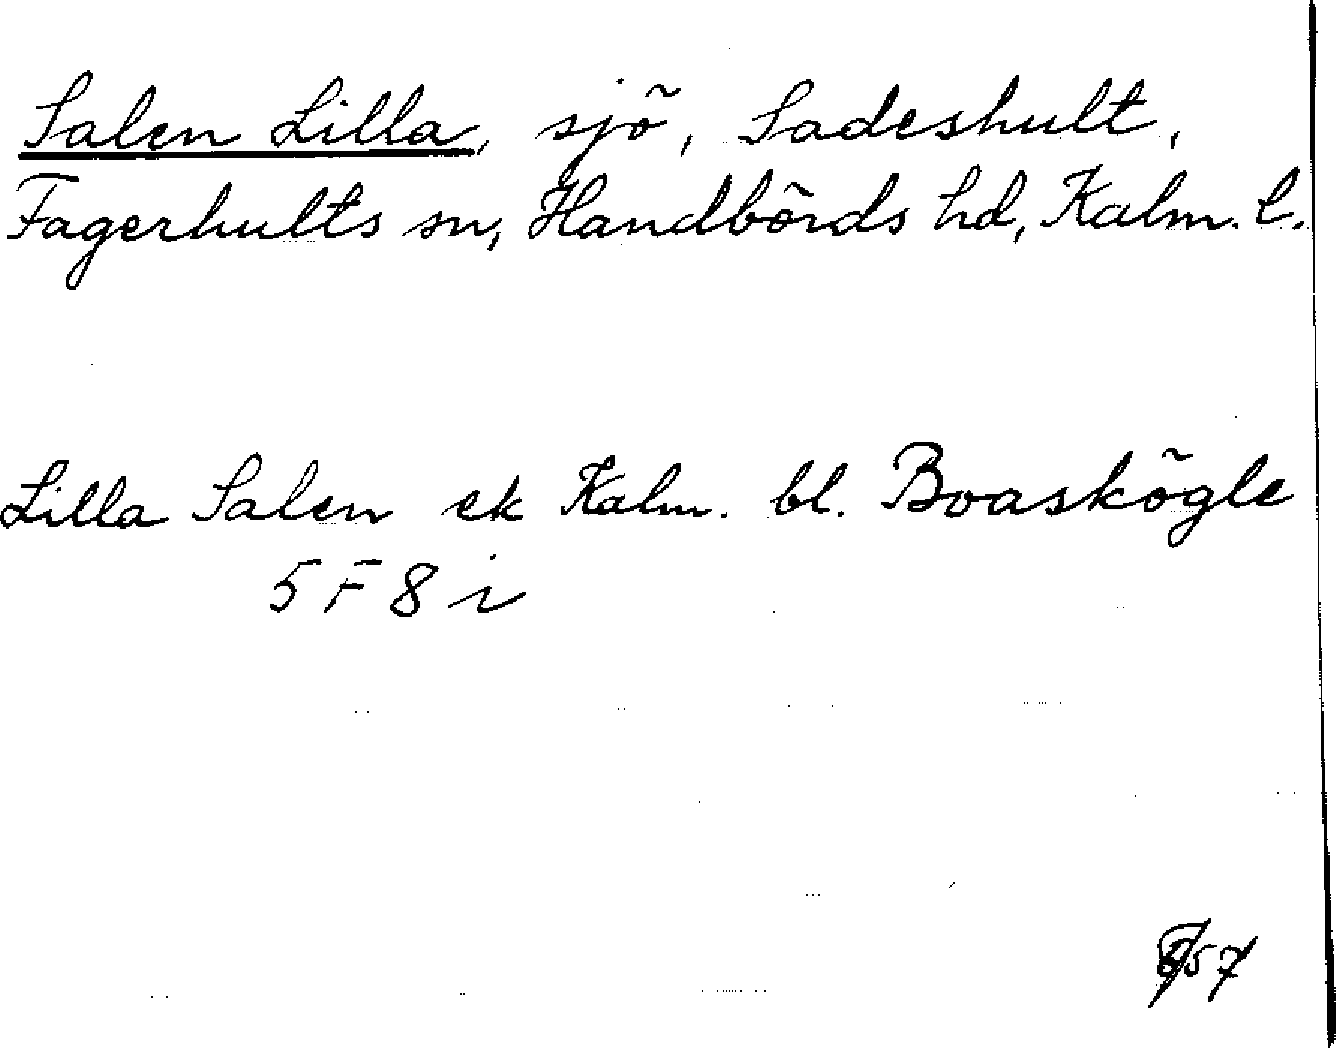 Salen Lilla, sjö, Sadeshult,
Fagerhults sn, Handbörds hd, Kalm. l.
Lilla Salen ek Kalm. bl. Boaskögle
5 F 8 i
57